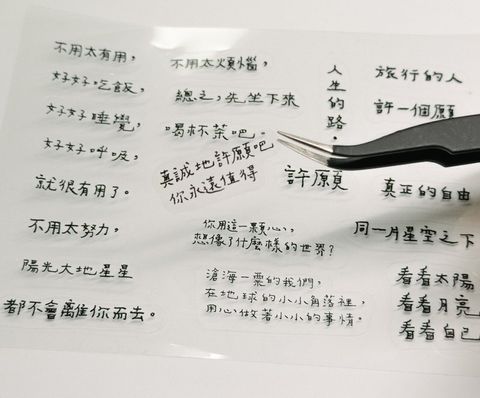 不用太有用，
好好吃飯，
好好睡覺，
好好呼吸，
就很有用了。
不用太煩惱，
總之，先坐下來
喝杯茶吧。
真誠地許願吧
你永遠值得
人生的路，
旅行的人
許一個願
許願
真正的自由
不用太努力，
陽光大地星星
都不會離你而去。
你用這一顆心，
想像了什麼樣的世界？
滄海一粟的我們，
在地球的小小角落裡，
用心做著小小的事情。
同一片星空之下
看看太陽
看看月亮
看看自己